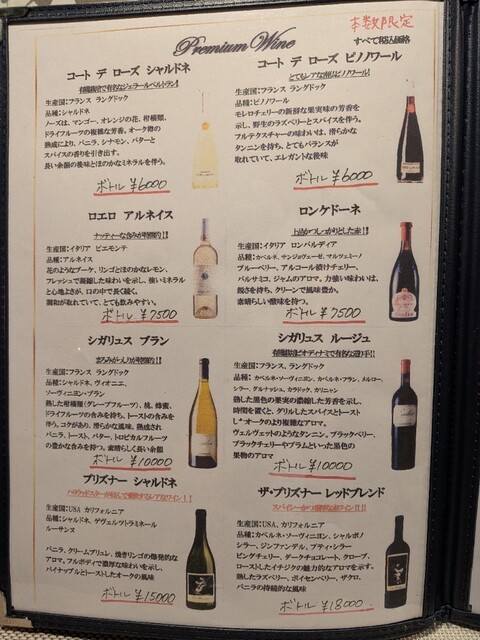 Premium Wine
本数限定
すべて税込価格
コート デ ローズ シャルドネ
有機栽培で有名なジェラールベルトラン!
生産国:フランス ラングドック
品種:シャルドネ
ノーズは、マンゴー、オレンジの花、柑橘類、
ドライフルーツの複雑な芳香。オーク樽の
熟成により、バニラ、シナモン、バターと
スパイスの香りを引き出す。
長い余韻の後味とほのかなミネラルを伴う。
ボトル ¥6000
コート デ ローズ ピノノワール
とてもレアな南仏ピノノワール!
生産国:フランス ラングドック
品種:ピノノワール
モレロチェリーの新鮮な果実味の芳香を
示し、野生のラズベリーとスパイスを伴う。
フルテクスチャーの味わいは、滑らかな
タンニンを持ち、とてもバランスが
取れていて、エレガントな後味
ボトル ¥6000
ロエロ アルネイス
ナッティーな含みが特徴的!!
生産国:イタリア ピエモンテ
品種:アルネイス
花のようなブーケ、リンゴとほのかなレモン、
フレッシュで凝縮した味わいを示し、強いミネラル
と心地よさが、口の中で長く続く。
調和が取れていて、とても飲みやすい。
ボトル ¥7500
ロンケドーネ
上品かつしっかりとした赤!!
生産国:イタリア ロンバルディア
品種:カベルネ、サンジョヴェーゼ、マルツェミーノ
ブルーベリー、アルコール漬けチェリー、
バルサミコ、ジャムのアロマ。力強い味わいは、
鋭さを持ち、クリーンで風味豊か。
素晴らしい酸味を持つ。
ボトル ¥7500
シガリュス ブラン
まろみがっつりが特徴的!!
生産国:フランス ラングドック
品種:シャルドネ、ヴィオニエ、
ソーヴィニヨン・ブラン
熟した柑橘類(グレープフルーツ)、桃、蜂蜜、
ドライフルーツの含みを持ち、トーストの含みを
伴う。コクがあり、滑らかな風味。熟成され
バニラ、トースト、バター、トロピカルフルーツ
の豊かな含みを持つ。素晴らしく長い余韻
ボトル ¥10000
シガリュス ルージュ
有機栽培ビオディナミで有名な造り手!!
生産国:フランス ラングドック
品種:カベルネ・ソーヴィニヨン、カベルネ・フラン、メルロー、
シラー、グルナッシュ、カラドック、カリニャン
熟した黒色の果実の濃縮した芳香を示し、
時間を置くと、グリルしたスパイスとトースト
したオークのより複雑なアロマ。
ヴェルヴェットのようなタンニン、ブラックベリー、
ブラックチェリーやプラムといった黒色の
果物のアロマ
ボトル ¥10000
プリズナー シャルドネ
生産国:USA カリフォルニア
品種:シャルドネ、ゲヴェルツトラミネール
ルーサンヌ
バニラ、クリームブリュレ、焼きリンゴの爆発的な
アロマ。フルボディで濃厚な味わいを示し、
パイナップルとトーストしたオークの風味
ボトル ¥15000
ザ・プリズナー レッドブレンド
生産国:USA、カリフォルニア
品種:カベルネ・ソーヴィニヨン、シャルボノ
シラー、ジンファンデル、プティ・シラー
ビングチェリー、ダークチョコレート、クローブ、
ローストしたイチジクの魅力的なアロマを示す。
熟したラズベリー、ボイセンベリー、ザクロ、
バニラの持続的な風味
ボトル ¥18000